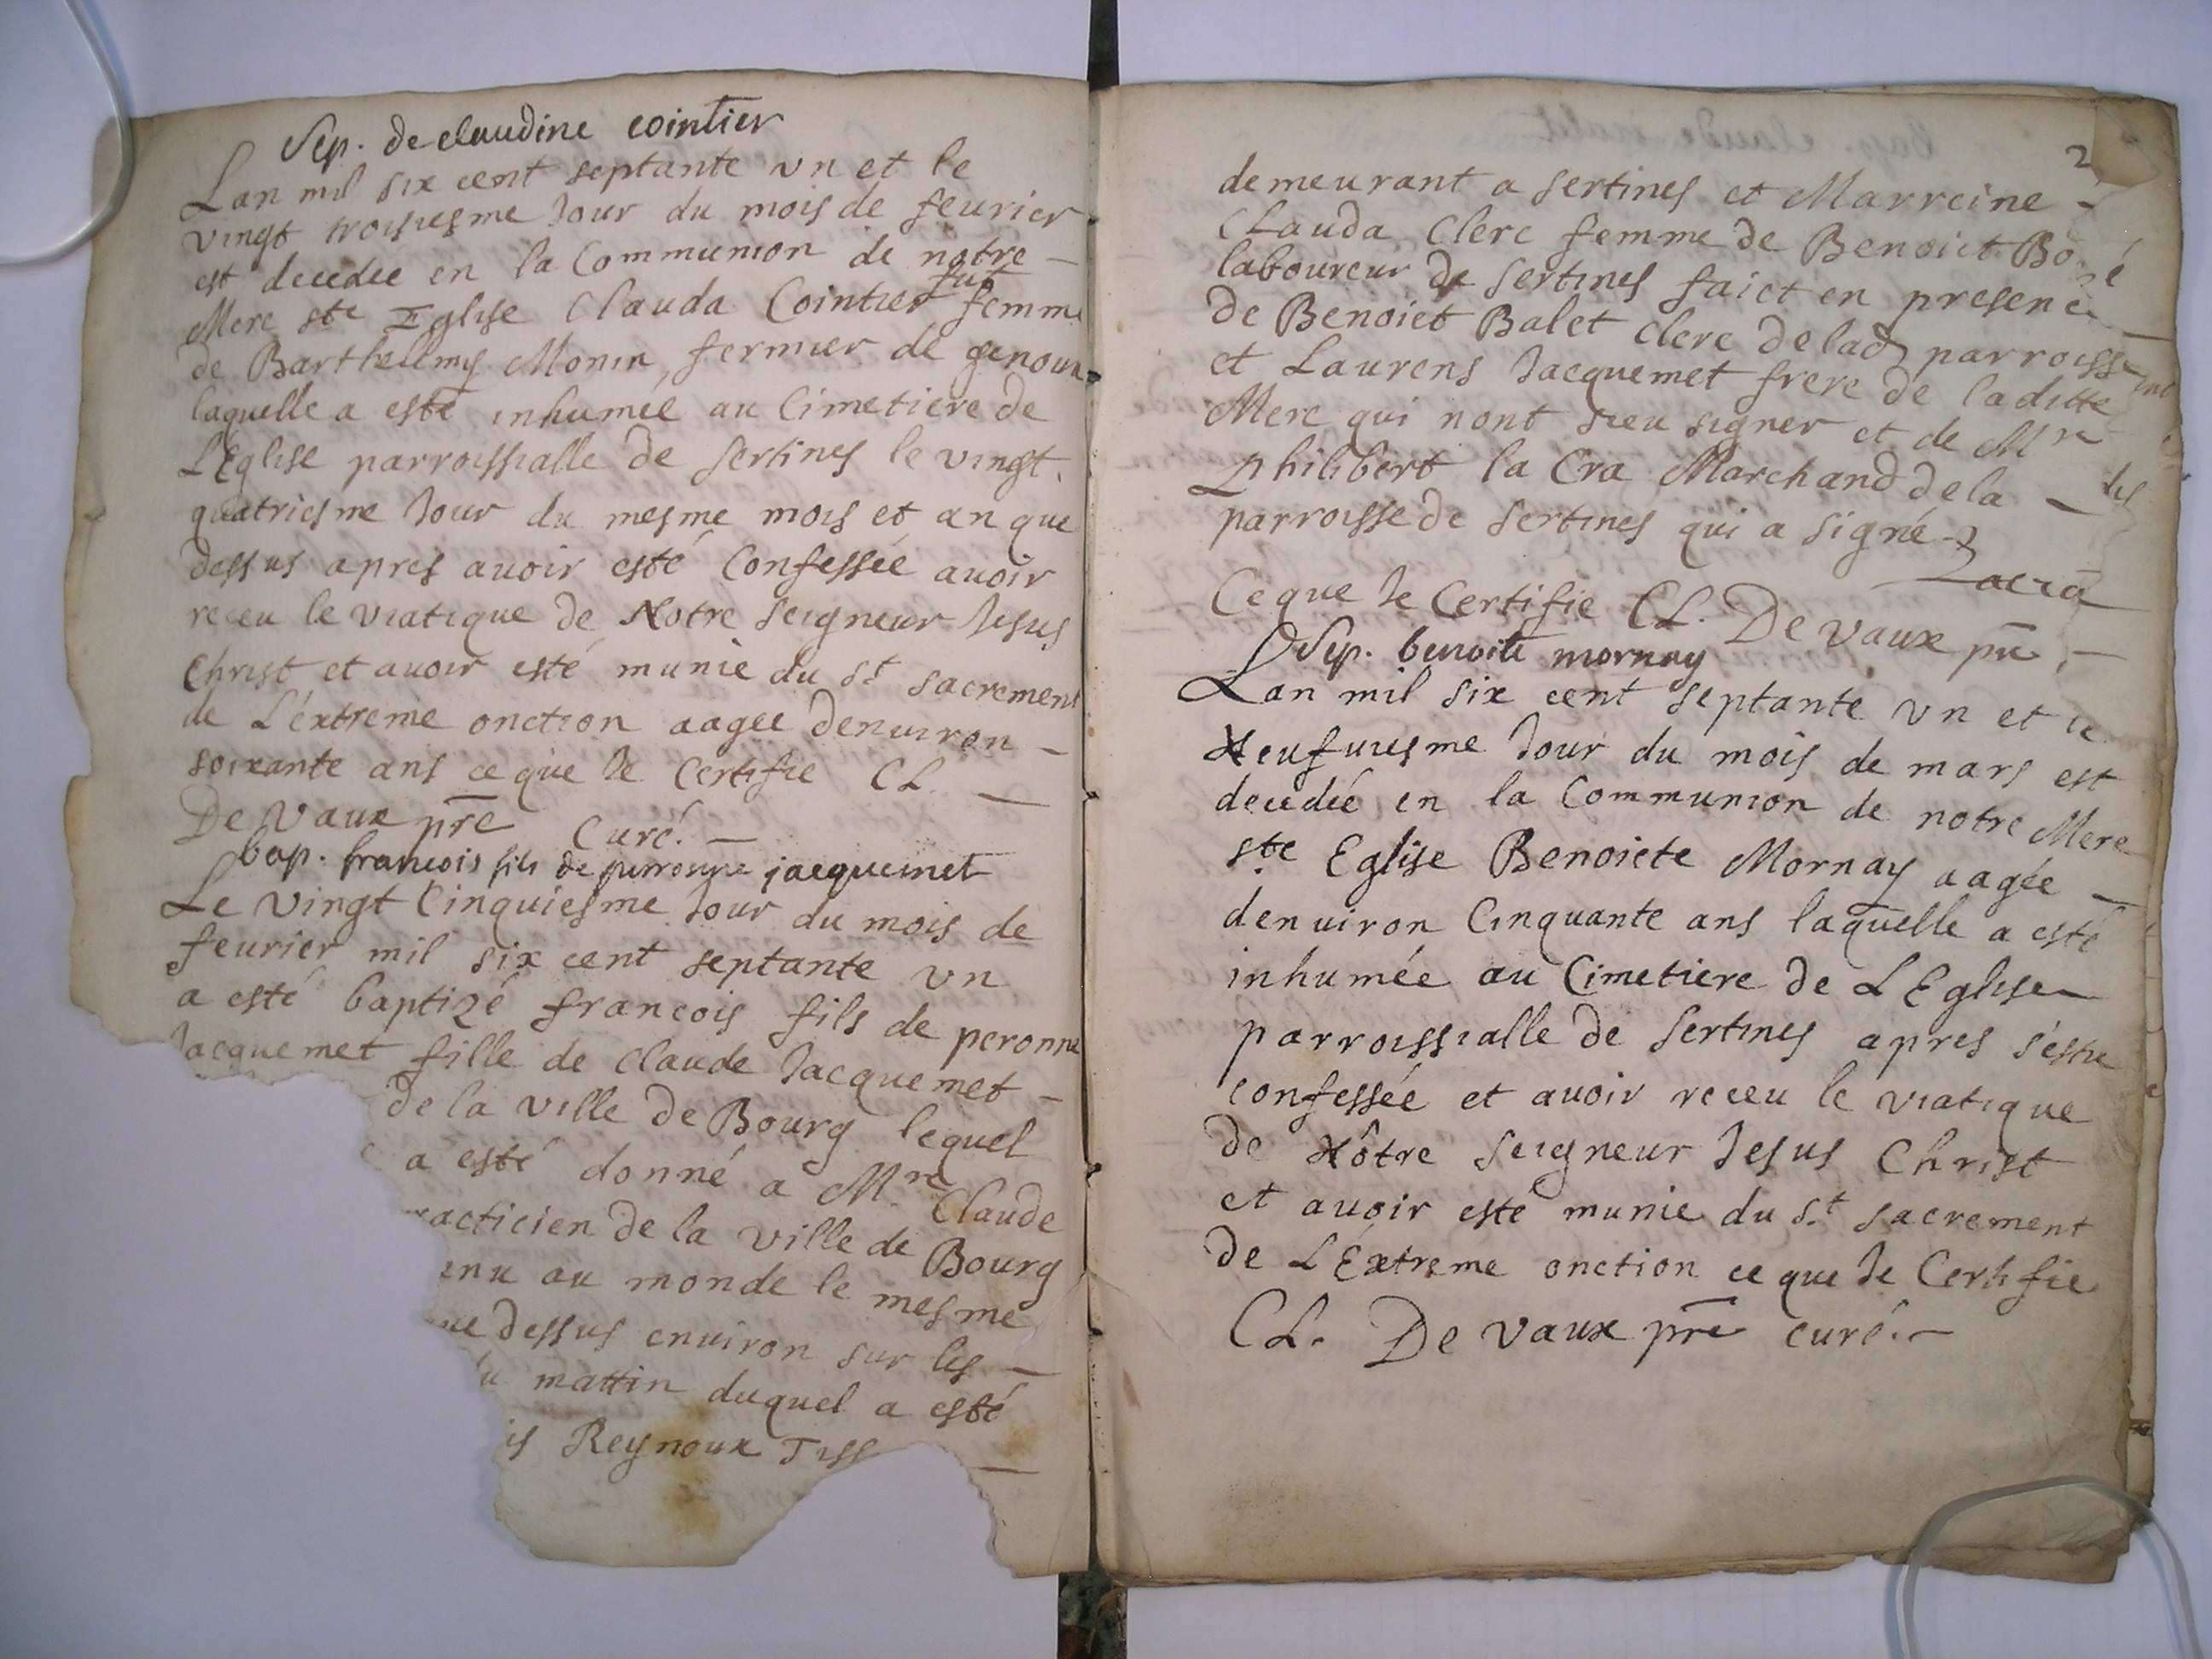 Sep. de claudine cointier
Lan mil six cent septante vn et le
vingt troisiesme Jour du mois de feurier
est decedee en la Communion de notre
Mere ste Eglise Clauda Cointier fut femme
de Barthellmy Monin, fermier de genoux
laquelle a esté inhumée au Cimetiere de
LEglise parroissialle de sertines le vingt
quatriesme Jour du mesme mois et an que
dessus apres auoir esté Confessée auoir
receu le viatique de Notre seigneur Jesus
Christ et auoir esté munie du st sacrement
de L'éxtreme onction aagee denuiron
soixante ans ce que Je Certifie CL.
De Vaux pre Curé.
bap. francois fils de perronne jacquemet
Le vingt Cinquiesme Jour du mois de
feurier mil six cent septante vn
a esté baptizé francois fils de peronne
Jacquemet fille de Claude Jacquemet
de la ville de Bourg lequel
a esté donné a Mre Claude
racticien de la ville de Bourg
enu au monde le mesme
ue dessus enuiron sur les
u mattin duquel a esté
is Reynoux Tiss
2
demeurant a sertines et Marreine
CLauda Clerc femme de Benoict
laboureur de sertines faict en presence
de Benoict Balet clerc de lad parroisse
et Laurens Jacquemet frere de laditte
Mere qui nont sceu signer et de Mre
philibert la Cra Marchand de la
parroisse de sertines qui a signé
Lacra
Ce que Je Certifie CL. De Vaux pre
Sep. benoite mornay
Lan mil six cent septante vn et le
Neufuiesme Jour du mois de mars est
decedée en la Communion de notre Mere
ste Eglise Benoicte Mornay aagée
denuiron Cinquante ans laquelle a esté
inhumée au Cimetiere de LEglise
parroissialle de sertines apres s'estre
confessée et auoir receu le viatique
de Nôtre seigneur Jesus Christ
et auoir esté munie du st sacrement
de L'Extreme onction ce que Je Certifie
CL. De Vaux pre curé.